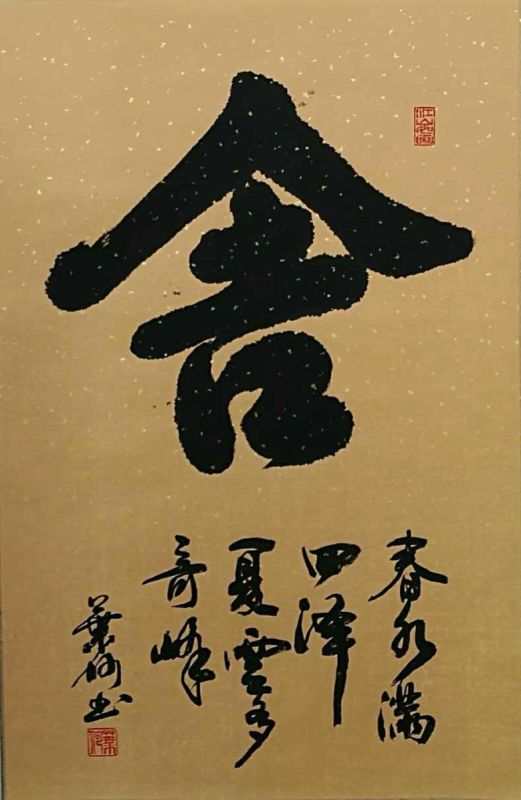 舍
春水滿
四澤
夏雲多
奇峰
葉向書